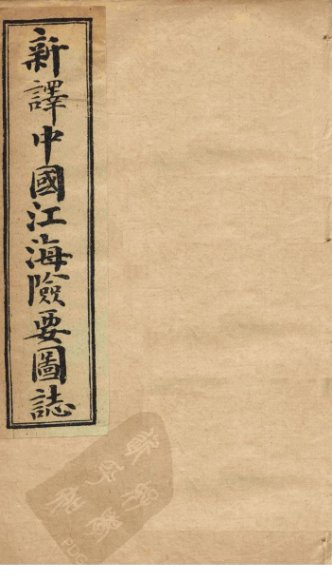 新譯中國江海險要圖誌